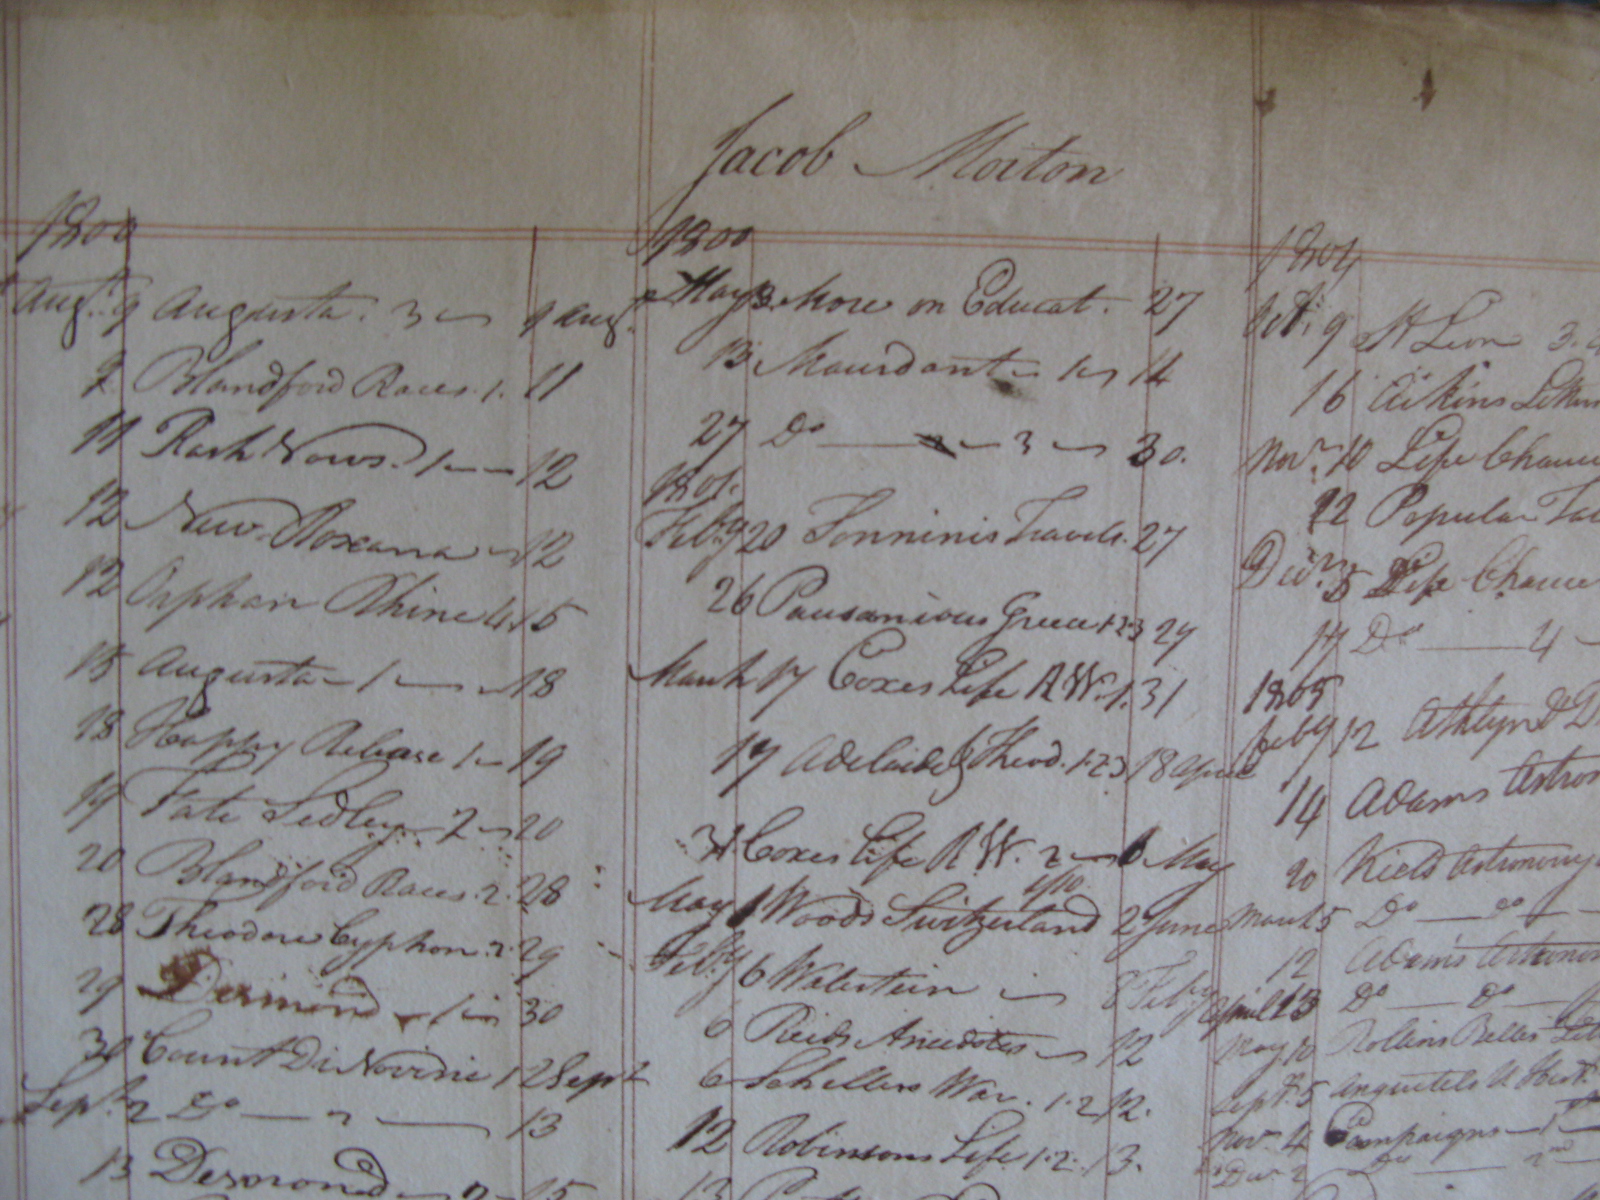 Jacob Morton
1800
Augt. 9 Augusta. 3 9 Augt.
9 Blandford Races. 1. 11
11 Rash Vows. 1 12
12 New Roxana 12
12 Orphan Rhine 4 15
15 Augusta 1 18
18 Happy Release 1 19
19 Fate Sedley 2 20
20 Blandford Races. 2. 28
28 Theodore Cyphon. 2. 29
29 Desmond 1 30
30 Count Di Novini 1 2 Sept
Sept. 2 Do 2 13
13 Desmond 2 15
1800
May 3. More on Educat. 27
13 Maurdant 1 14
27 Do 3 30.
1801.
Feby 20 Sonninis Travels. 27
26 Pausanious Greece 1 2 3 29
March 17 Coxes Life R W. 1. 31
17 Adelaide & Theod. 1. 2 3 18 April
31 Coxes Life R W. 2 1 May
May 1 Woods Switzerland 2 June
Feby 6 Walstein 8 Feby
6 Reids Anecdotes 12
6 Schellers War. 1. 2 12.
12 Robinsons Life 1. 2. 13.
13
1804
Oct. 9 St Leon 3.
16 Aikins Letters
Novr. 10 Life Chauce
12 Popular Ta
Decr. 5 Life Chauce
14 Do 4
1805
Feby 12 Athlyn & D
14 Adams Astron
20 Kiels Astronomy
March 5 Do do
12 Adams Astronom
April 13 Do Do
May 10 Rollins Belles Let
Sept. 5 Anquetels U Hist.
Nov. 4 Campaigns 1st
Decr 2 Do 2nd